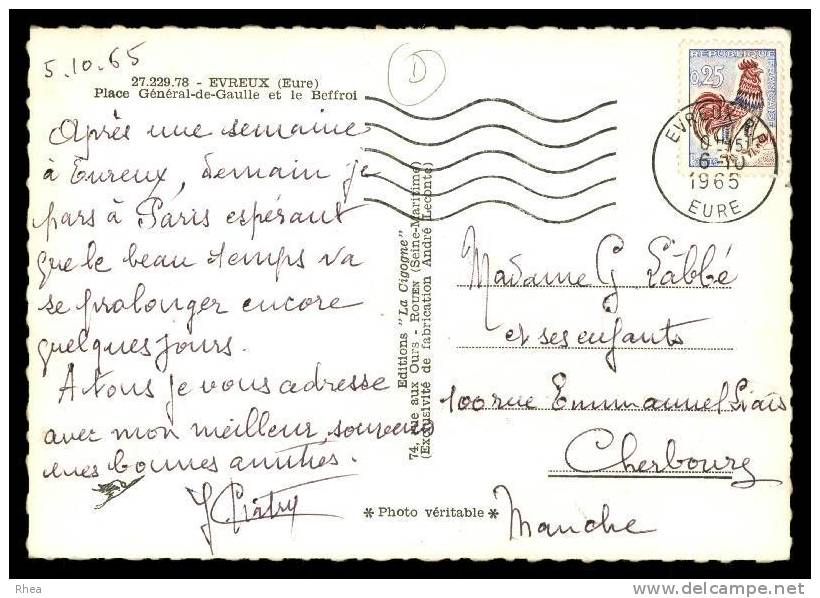 5.10.65
D
27.229.78 - EVREUX (Eure)
Place Général-de-Gaulle et le Beffroi
Après une semaine
à Evreux, demain je
pars à Paris espérant
que le beau temps va
se prolonger encore
quelques jours.
A tous je vous adresse
avec mon meilleur souvenir
mes bonnes amitiés.
Editions "La Cigogne"
74, rue aux Ours - ROUEN (Seine-Maritime)
(Exclusivité de fabrication André Leconte)
* Photo véritable *
REPUBLIQUE FRANÇAISE
0,25
EVREUX R.P.
6-10
1965
EURE
Madame G Labbé
et ses enfants
100 rue Emmanuel Liais
Cherbourg
Manche
Rhea
delcampe.net